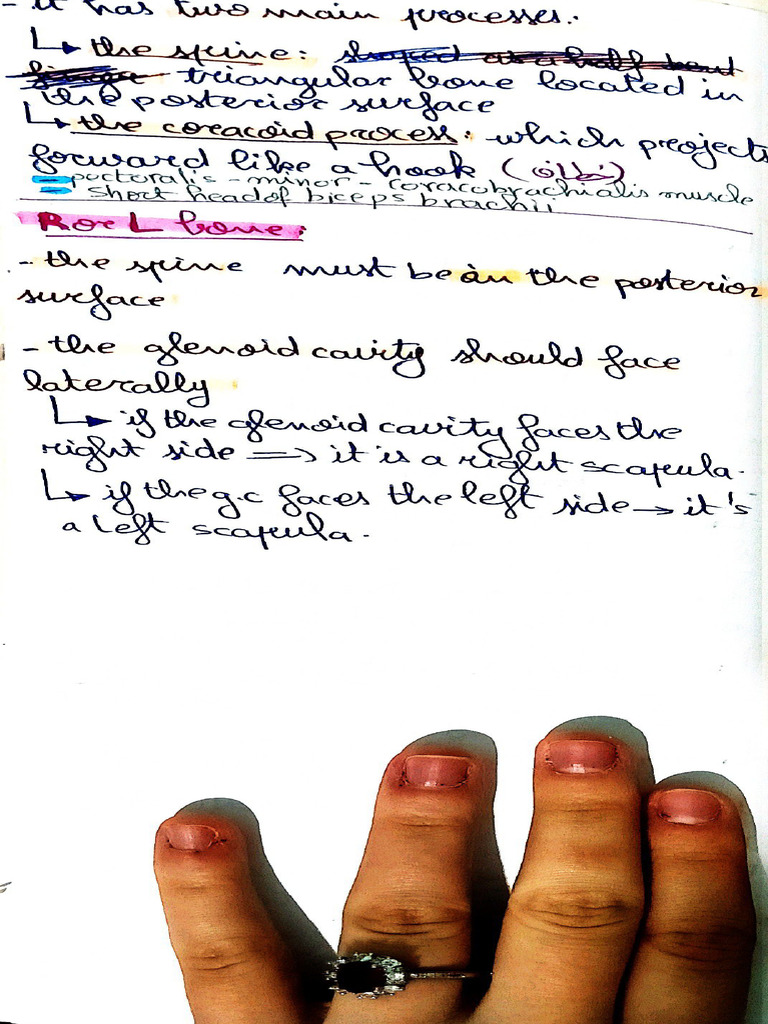 - it has two main processes:
↳ the spine: shaped as a half bent
finger triangular bone located in
the posterior surface
↳ the coracoid process: which projects
forward like a hook (خطاف)
= pectoralis - minor - coracobrachialis muscle
= short head of biceps brachii
R or L bone:
- the spine must be in the posterior
surface
- the glenoid cavity should face
laterally
↳ if the glenoid cavity faces the
right side ⇒ it is a right scapula.
↳ if the g.c faces the left side → it's
a left scapula.